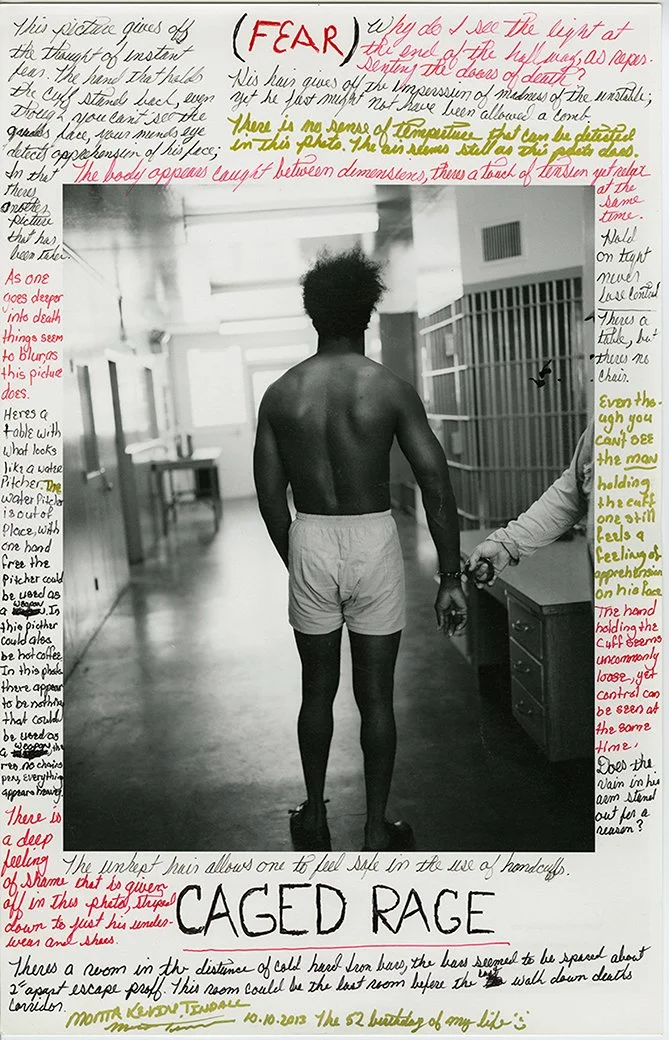 This picture gives off
the thought of instant
fear. The hand that holds
the Cuff stands back, even
though you can't see the
guards face, your minds eye
detect apprehension of his face;
In that
theres
another
picture
that has
been taken.
(FEAR)
Why do I see the light at
the end of the hall way, as repre-
senting the doors of death?
His hair gives off the imperssion of madness of the unstable;
yet he just might not have been allowed a comb.
There is no sense of tempertuce that can be detected
in this photo. The air seems still as this photo does.
The body appears caught between dimensions, theres a touch of tension yet relax
at the
same
time.
As one
goes deeper
into death
things seem
to blur, as
this picture
does.
Heres a
table with
what looks
like a water
Pitcher. The
water Pitcher
is out of
Place, with
one hand
free the
Pitcher could
be used as
a weapon. In
this picther
could also
be hot coffee
In this photo
there appear
to be nothing
that could
be used as
a weapon, the
res, no chairs
pens, everything
appears heavy.
There is
a deep
feeling
of shame that is given
off in this photo, striped
down to just his under-
wear and shoes.
Hold
on tight
never
Lose Control
Theres a
table, but
theres no
Chair.
Even tho-
ugh you
can't see
the man
holding
the cuff
one still
feels a
feeling of
apprehension
on his face
The hand
holding the
Cuff seems
uncommonly
loose, yet
control can
be seen at
the same
time.
Does the
Vain in his
arm stand
out for a
reason?
The unkept hair allows one to feel safe in the use of handcuffs.
CAGED RAGE
Theres a room in the distance of cold hard Iron bars, the bars seemed to be spared about
2" apart escape proff. This room could be the last room before the last walk down deaths
Corridor.
MONTA KEVIN TINDALL
10.10.2013 The 52 birthday of my life